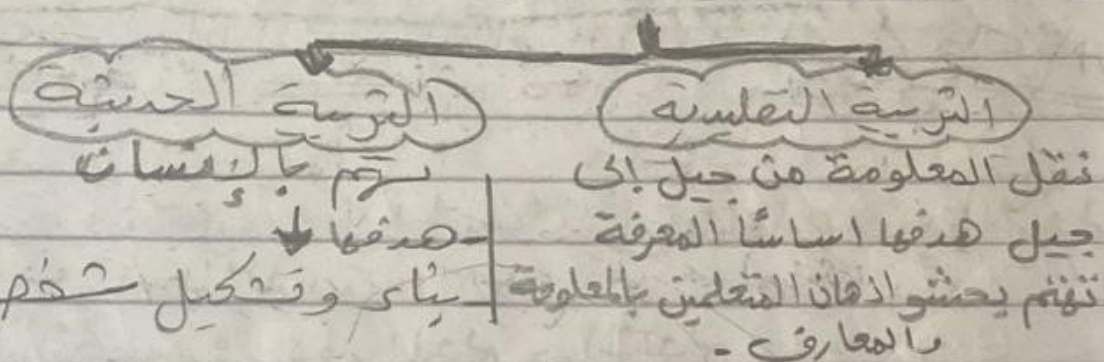 التربية التقليدية
نقل المعلومة من جيل إلى
جيل هدفها اساسًا المعرفة
تهتم بحشو اذهان المتعلمين بالمعلومة
والمعارف -
التربية الحديثة
تهتم بالإنسان
- هدفها
بناء وتشكيل شخص